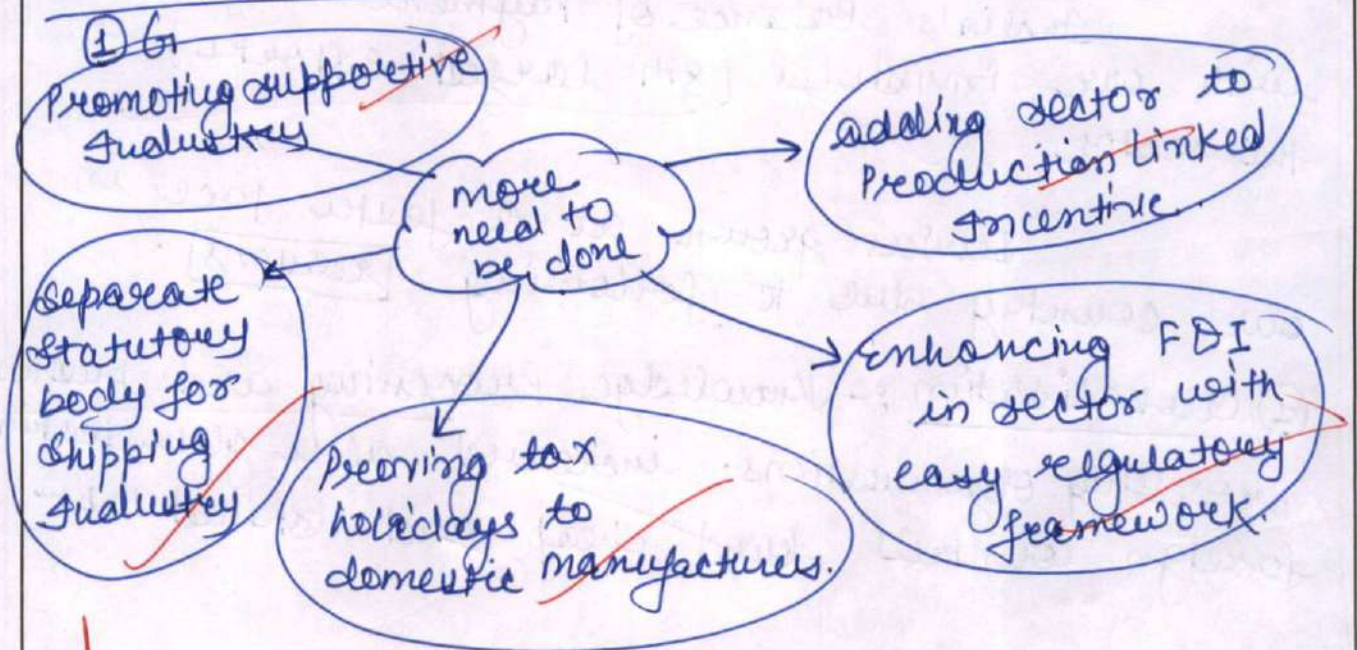 ① G
Promoting supportive
Industry
more
need to
be done
adding sector to
Production linked
Incentive.
Separate
Statutory
body for
Shipping
Industry
Proving tax
holidays to
domestic manufacturers.
enhancing FDI
in sector with
easy regulatory
framework.